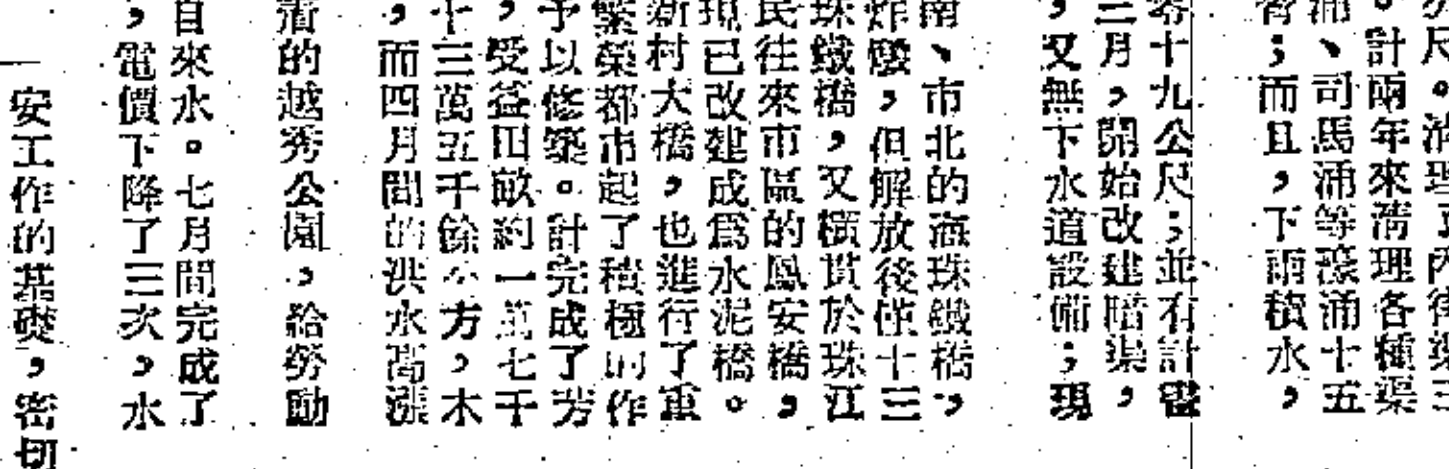 公尺。清理工內街渠三
。計兩年來清理各種渠
涌、司馬涌等濠涌十五
;而且,下雨積水,
零十九公尺;並有計
三月,開始改建暗渠,
,又無下水道設備;現
南、市北的海珠鐵橋,
炸燬,但解放後僅十三
珠鐵橋,又橫貫於珠江
民往來市區的鳳安橋,
現已改建成爲水泥橋。
新村大橋,也進行了重
繁榮都市起了積極的作
予以修築。計完成了
,受益田畝約一萬七千
十三萬五千餘公方,木
,而四月間的洪水高漲
清的越秀公園,給勞動
自來水。七月間完成了
,電價下降了三次,水
安工作的基礎,密切